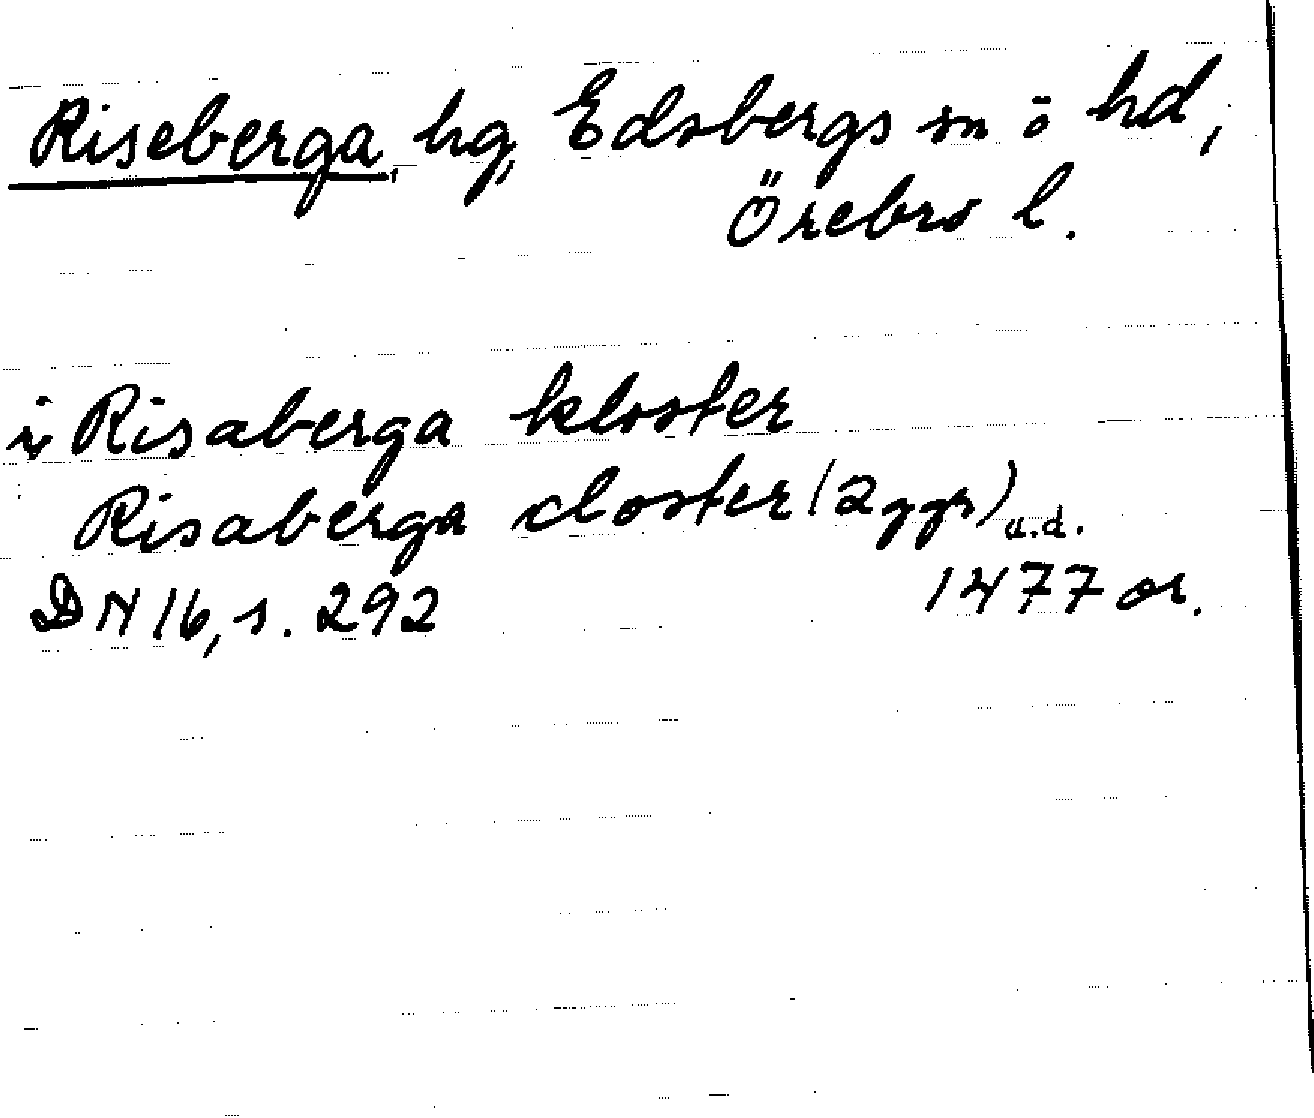 Riseberga, hg, Edsbergs sn o hd,
Örebro l.
i Risaberga kloster
Risaberga closter (2 ggr) u.d.
DN 16, s. 292 1477 or.